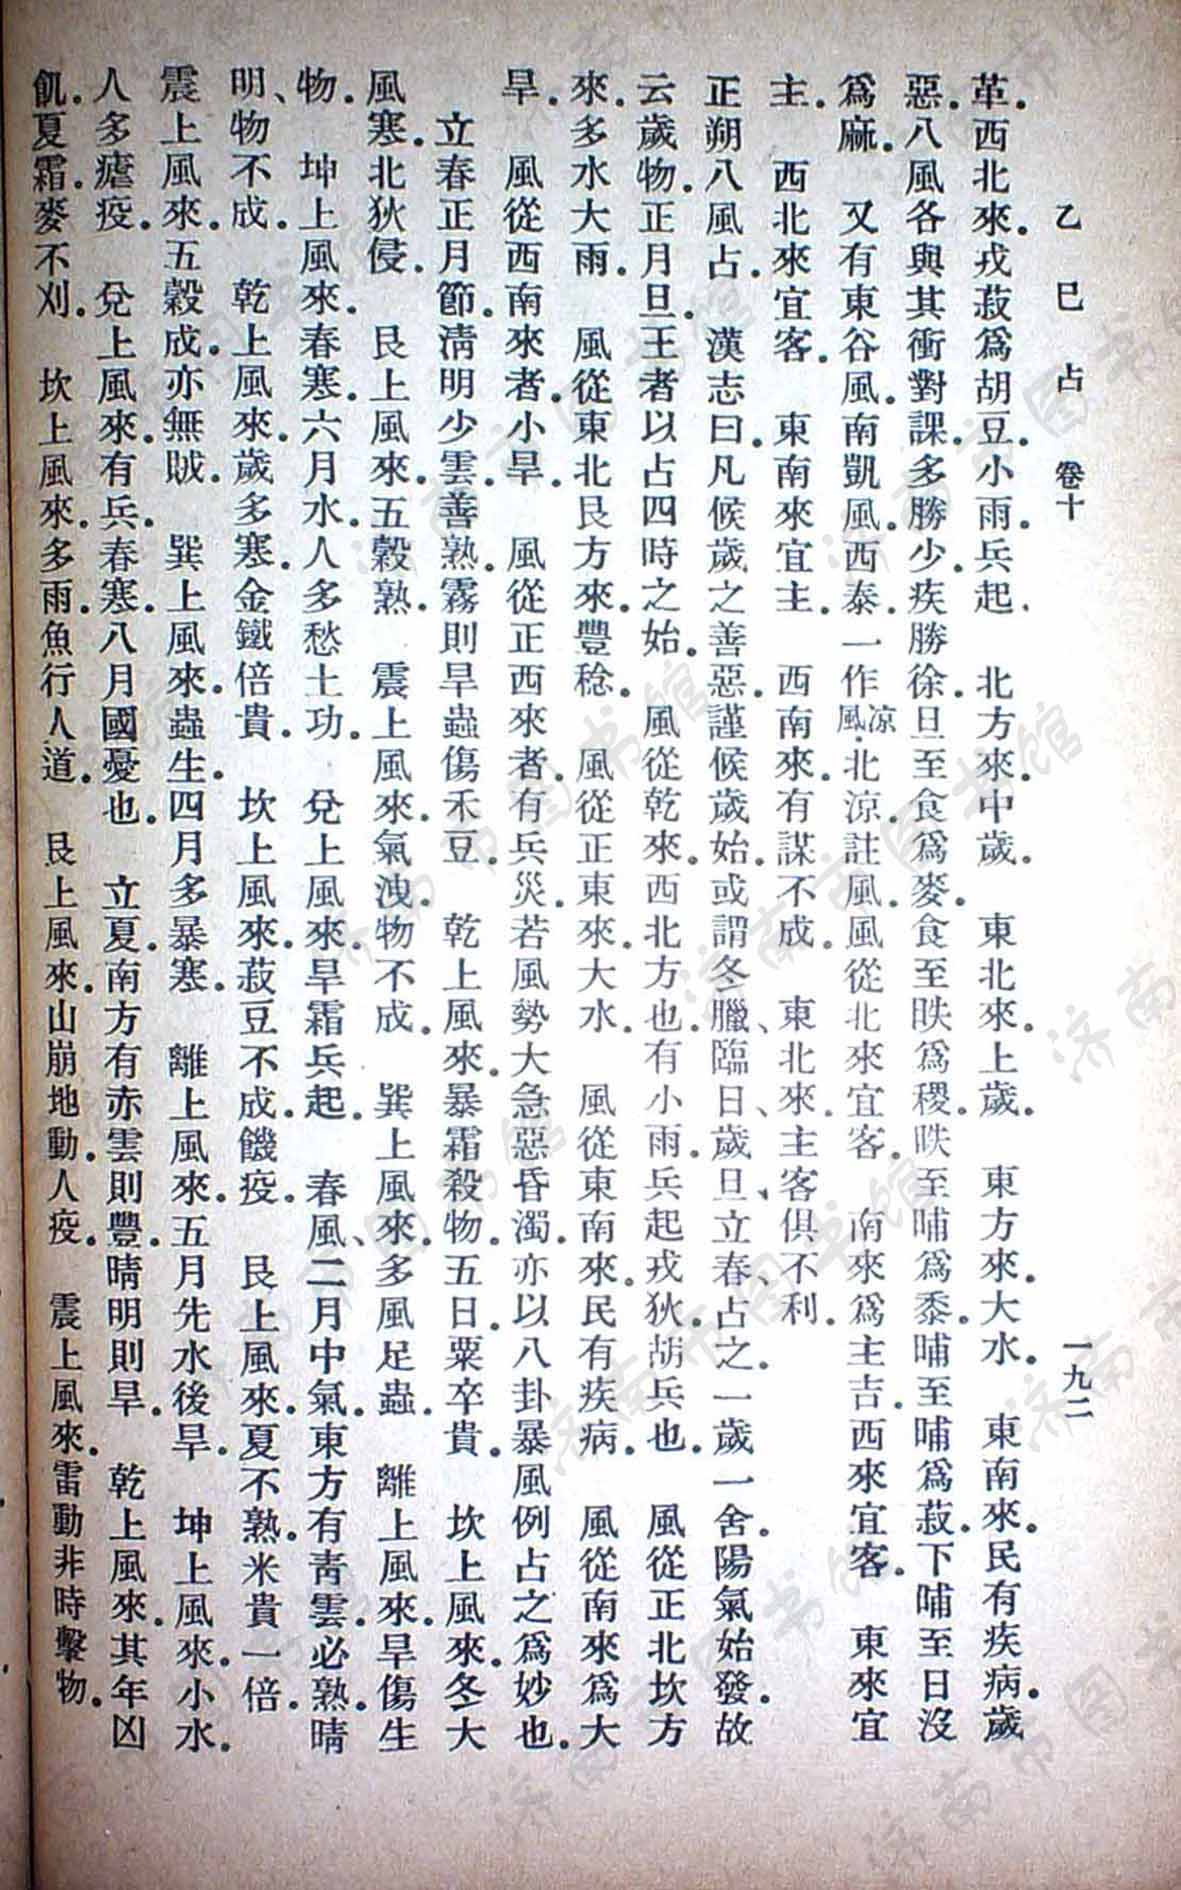 乙巳占 卷十 一九二
革。西北來。戎菽爲胡豆。小雨。兵起。 北方來。中歲。 東北來。上歲。 東方來。大水。 東南來。民有疾病。歲
惡。八風各與其衝對課。多勝少。疾勝徐。旦至食爲麥。食至昳爲稷。昳至晡爲黍。晡至晡爲菽。下晡至日沒
爲麻。 又有東谷風。南凱風。西泰一作涼風。北涼註風。風從北來宜客。 南來爲主吉。西來宜客。 東來宜
主。 西北來宜客。 東南來宜主。 西南來。有謀不成。 東北來。主客俱不利。
正朔八風占。 漢志曰。凡候歲之善惡。謹候歲始。或謂冬臘、臨日、歲旦、立春、占之。一歲一舍。陽氣始發。故
云歲物。正月旦。王者以占四時之始。 風從乾來。西北方也。有小雨。兵起戎狄。胡兵也。 風從正北坎方
來。多水大雨。 風從東北艮方來。豐稔。 風從正東來。大水。 風從東南來。民有疾病。 風從南來爲大
旱。 風從西南來者。小旱。 風從正西來者。有兵災。若風勢大急惡昏濁。亦以八卦暴風例占之爲妙也。
立春正月節。清明少雲。善熟。霧則旱蟲傷禾豆。 乾上風來。暴霜殺物。五日。粟卒貴。 坎上風來。冬大
風寒。北狄侵。 艮上風來。五穀熟。 震上風來。氣洩。物不成。 巽上風來。多風足蟲。 離上風來。旱傷生
物。 坤上風來。春寒。六月水。人多愁土功。 兌上風來。旱霜兵起。 春風、二月中氣。東方有青雲。必熟。晴
明、物不成。 乾上風來。歲多寒。金鐵倍貴。 坎上風來。菽豆不成。饑疫。 艮上風來。夏不熟。米貴一倍。
震上風來。五穀成。亦無賊。 巽上風來。蟲生。四月多暴寒。 離上風來。五月先水後旱。 坤上風來。小水。
人多瘧疫。 兌上風來。有兵。春寒。八月國憂也。 立夏。南方有赤雲則豐。晴明則旱。 乾上風來。其年凶
飢。夏霜。麥不刈。 坎上風來。多雨。魚行人道。 艮上風來。山崩地動。人疫。 震上風來。雷動非時擊物。